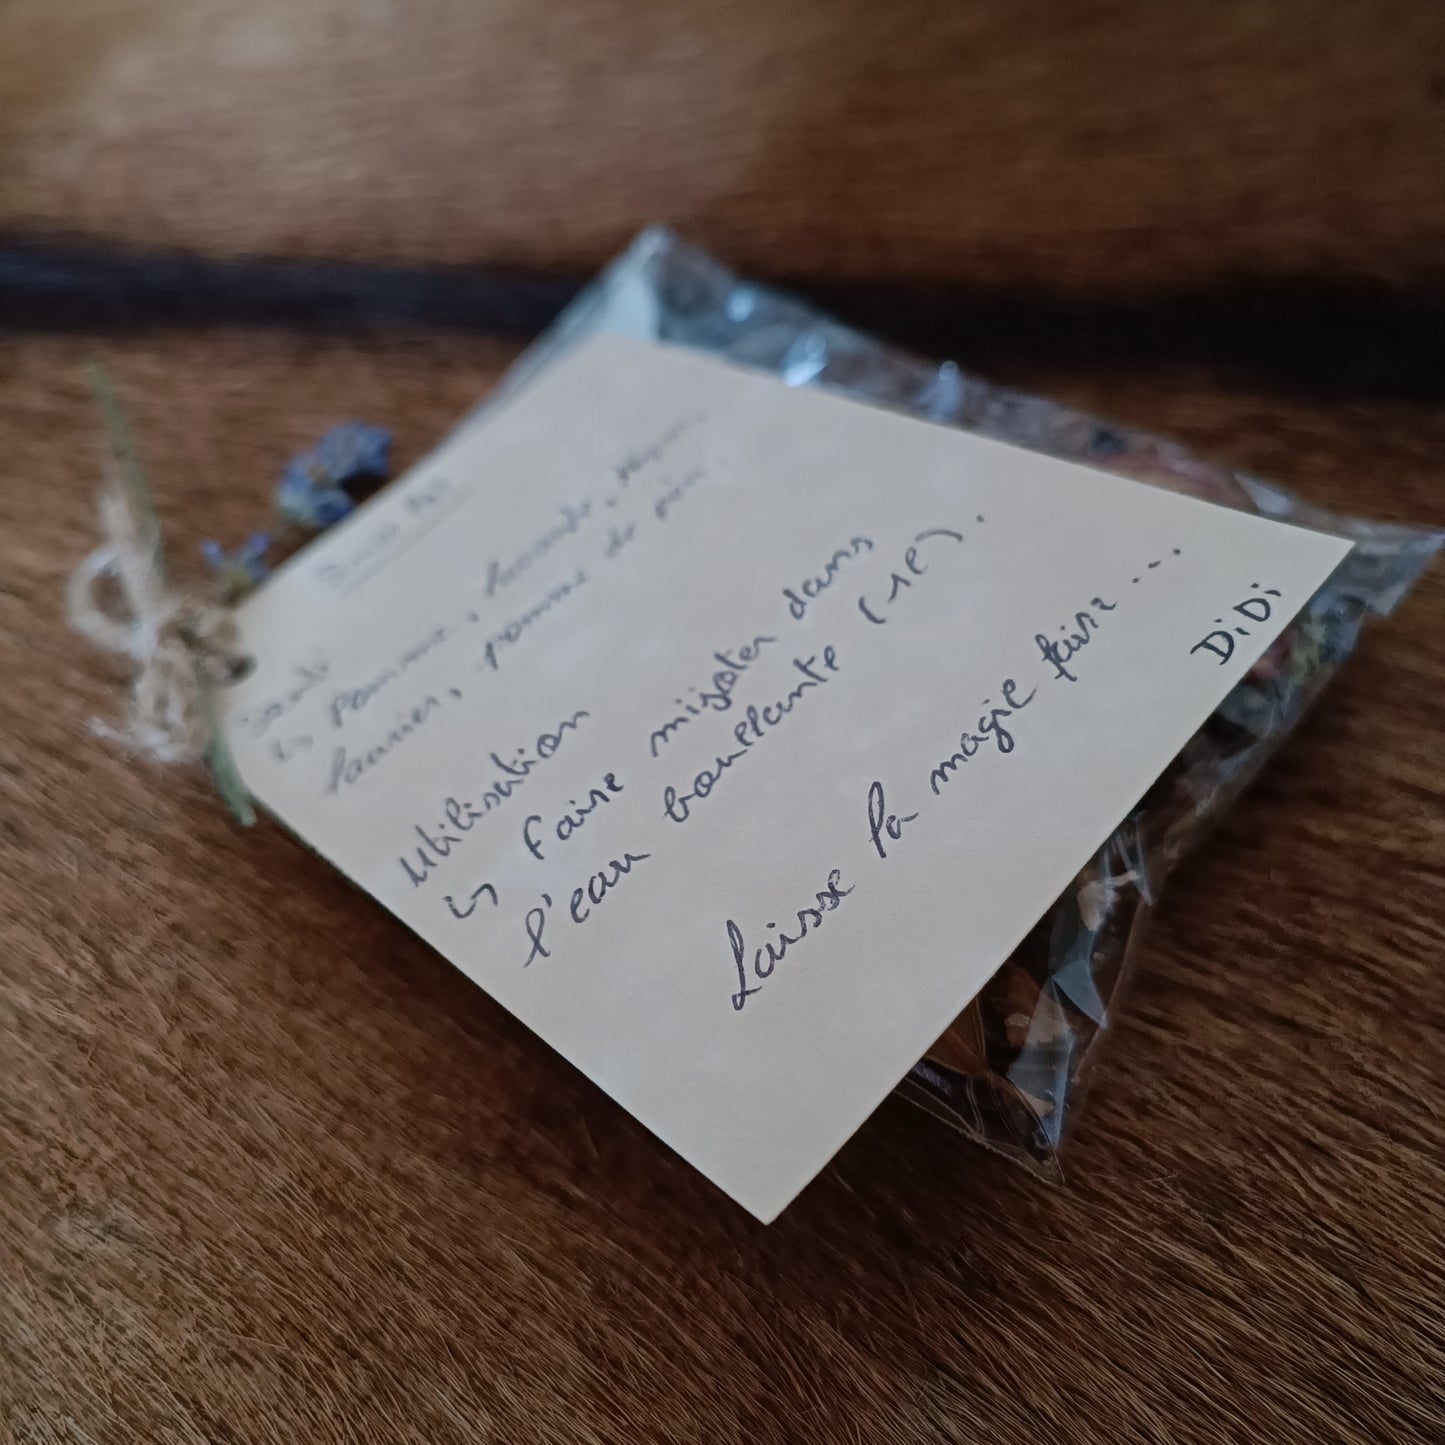 Simmer Pot
Santé
↳ Pomme, lavande,
laurier, pomme de pin.
Utilisation
↳ Faire mijoter dans
l'eau bouillante (-1er).
Laisse la magie faire...
DiDi